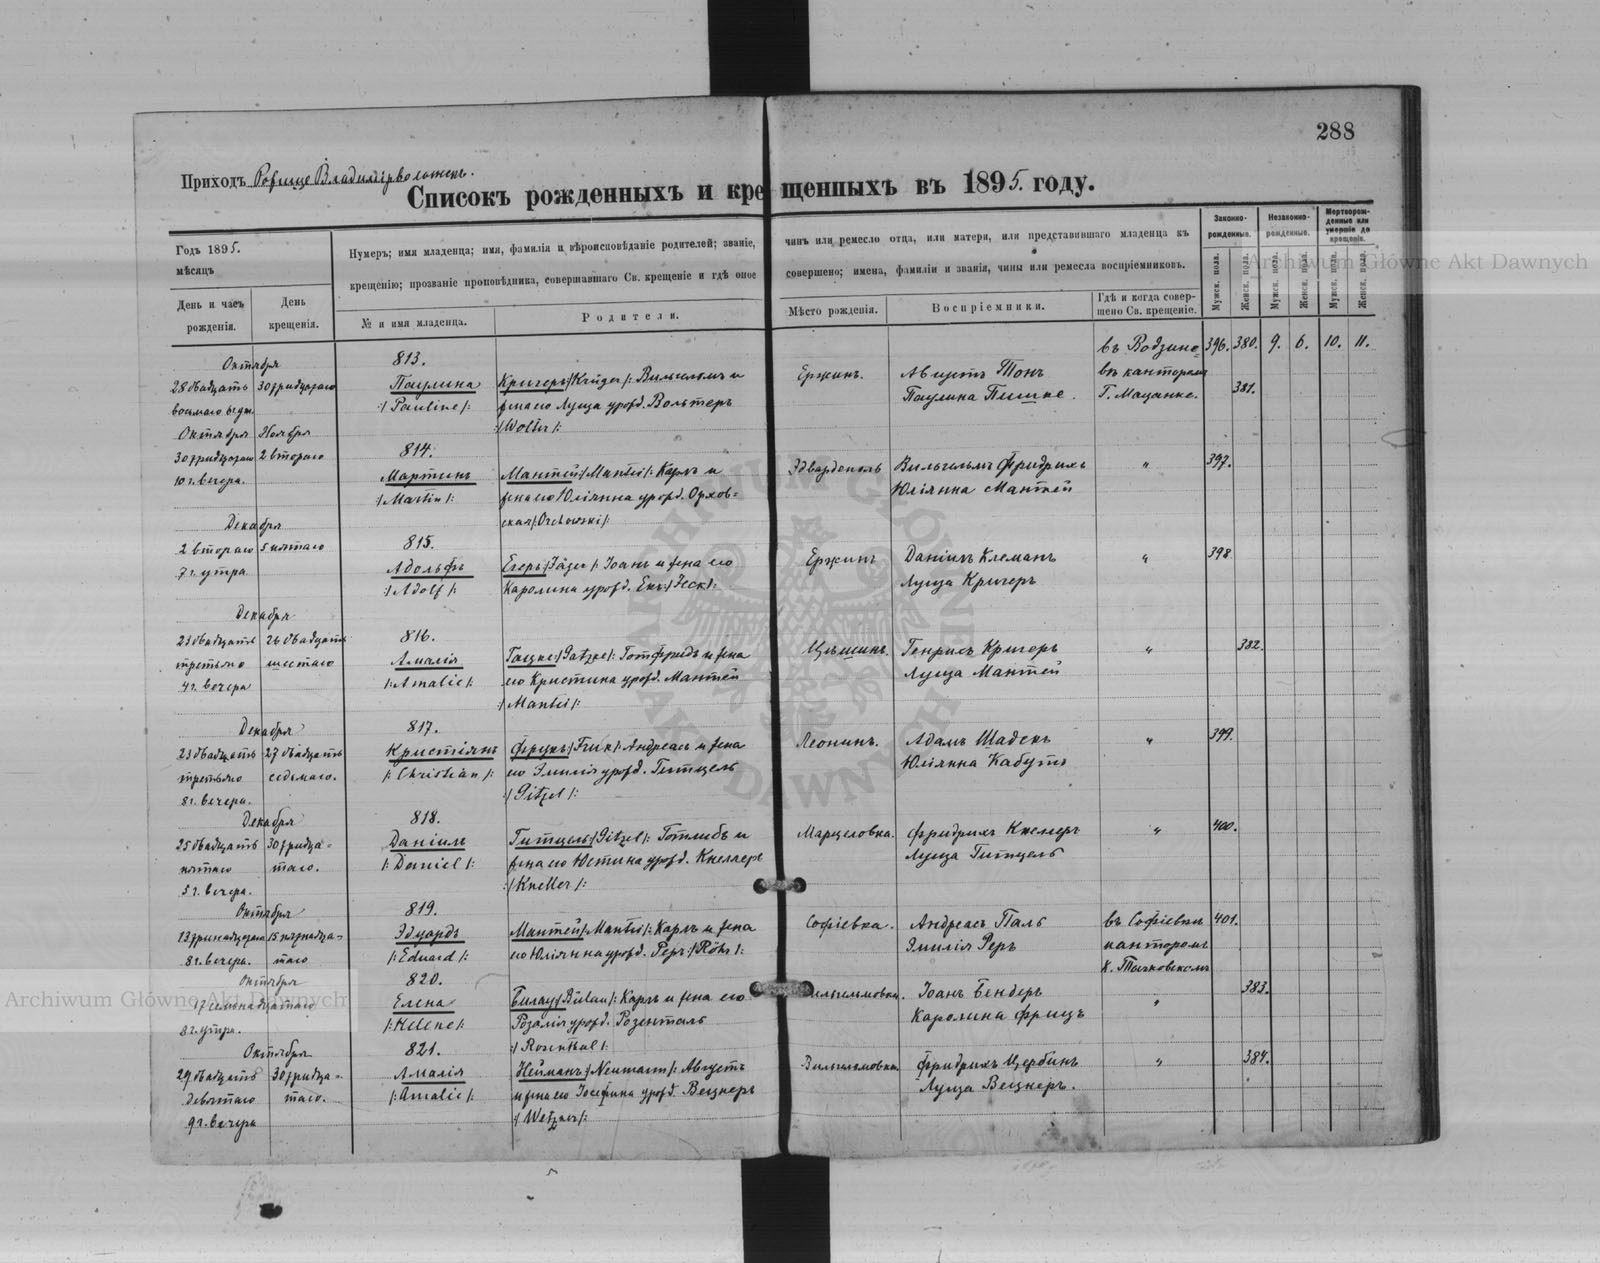 288
Приходъ Рожище Владимірволынск.
Списокъ рожденныхъ и крещенныхъ въ 1895. году.
Годъ 1895.
мѣсяцъ
День и часъ рожденія.
День крещенія.
Нумеръ; имя младенца; имя, фамилія и вѣроисповѣданіе родителей; званіе, чинъ или ремесло отца, или матери, или представившаго младенца къ
крещенію; прозваніе проповѣдника, совершавшаго Св. крещеніе и гдѣ оное совершено; имена, фамиліи и званія, чины или ремесла воспріемниковъ.
№ и имя младенца.
Родители.
Мѣсто рожденія.
Воспріемники.
Гдѣ и когда совершено Св. крещеніе.
Законнорожденные.
Незаконнорожденные.
Мертворожденные или умершіе до крещенія.
Мужск. пола. Женск. пола. Мужск. пола. Женск. пола. Мужск. пола. Женск. пола.
396. 380. 9. 6. 10. 11.
Октября
28 двадцать 30 тридцатаго
восьмаго
813.
Паулина
/: Pauline :/
Кригеръ /: Krüger :/ Вильгельмъ и
жена его Луиза урожд. Вольтеръ
/: Wolter :/
Ержинъ.
Августъ Тонъ
Паулина Пешке.
въ
канторомъ
Г. Мацанке.
381.
Октября Ноября
30 тридцатаго 2 втораго
10 ч. вечера.
814.
Мартинъ
/: Martin :/
Мантей /: Mantei :/ Карлъ и
жена его Юліянна урожд. Орхов-
ская /: Orchowski :/
Эдвардполь
Вильгельмъ Фридрихъ
Юліянна Мантей
"
397.
Декабря
2 втораго 5 пятаго
7 ч. утра.
815.
Адольфъ
/: Adolf :/
Егеръ /: Jäger :/ Іоанъ и жена его
Каролина урожд. Екъ /: Jeck :/
Ержинъ
Даніилъ Клеманъ
Луиза Кригеръ
"
398.
Декабря
23 двадцать 26 двадцать
третьяго шестаго
4 ч. вечера
816.
Амалія
/: Amalie :/
Гацке /: Gatzke :/ Готфридъ и жена
его Кристина урожд. Мантей
/: Mantei :/
Цѣшинъ.
Генрихъ Кригеръ
Луиза Мантей
"
382.
Декабря
23 двадцать 27 двадцать
третьяго седьмаго.
8 ч. вечера.
817.
Кристіянъ
/: Christian :/
Фрукъ /: Андреасъ и жена
его Эмилія урожд. Гитцель
/: Gitzel :/
Леонинъ.
Адамъ Шадекъ
Юліянна Кабутъ
"
399.
Декабря
25 двадцать 30 тридца-
пятаго таго.
5 ч. вечера.
818.
Даніилъ
/: Daniel :/
Гитцель /: Gitzel :/ Готлибъ и
жена его Юстина урожд. Кнеллеръ
/: Kneller :/
Марцеловка.
Фридрихъ Кнелеръ
Луиза Гитцель
"
400.
Октября
13 тринадцатаго 15 пятнадца-
8 ч. вечера. таго
819.
Эдуардъ
/: Eduard :/
Мантей /: Mantei :/ Карлъ и жена
его Юліянна урожд. Реръ /: Röhr :/
Софіевка.
Андреасъ Паль
Эмилія Реръ
въ Софіевкѣ
канторомъ
401.
Октября
17 семнадцатаго
8 ч. утра.
820.
Елена
/: Helene :/
Билау /: Bülau :/ Карлъ и жена его
Розалія урожд. Розенталь
/: Rosenthal :/
Іоанъ Бендеръ
Каролина Фрицъ
"
383.
Октября
29 двадцать 30 тридца-
девятаго таго.
9 ч. вечера
821.
Амалія
/: Amalie :/
Нейманъ /: Neumann :/ Августъ
и жена его Іосефина урожд. Вецнеръ
/: Wetzner :/
Вильгельмовка
Фридрихъ Щербинъ
Луиза Вецнеръ.
"
384.
ARCHIWUM GŁÓWNE AKT DAWNYCH
Archiwum Główne Akt Dawnych
Archiwum Główne Akt Dawnych